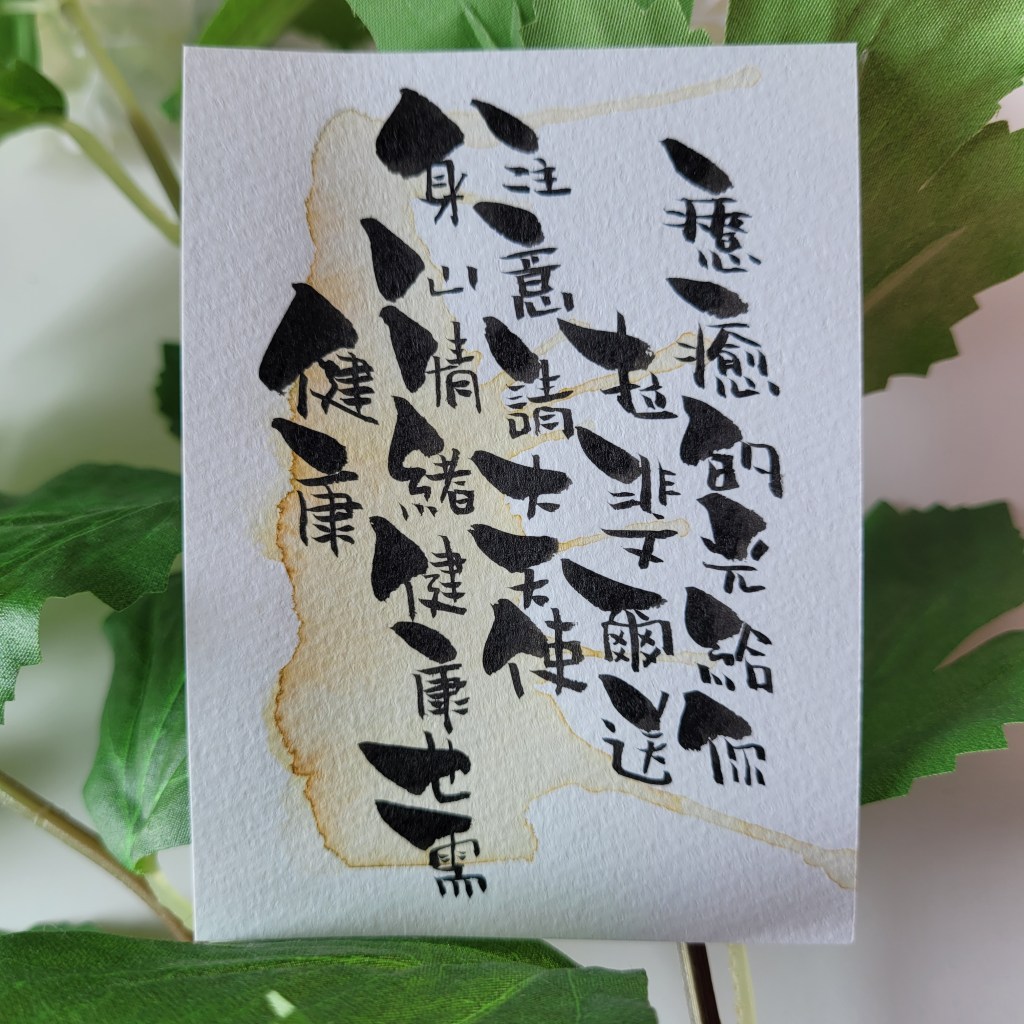 健康
身心情緒健康也需
注意請大天使
拉斐爾送
療癒的光給你